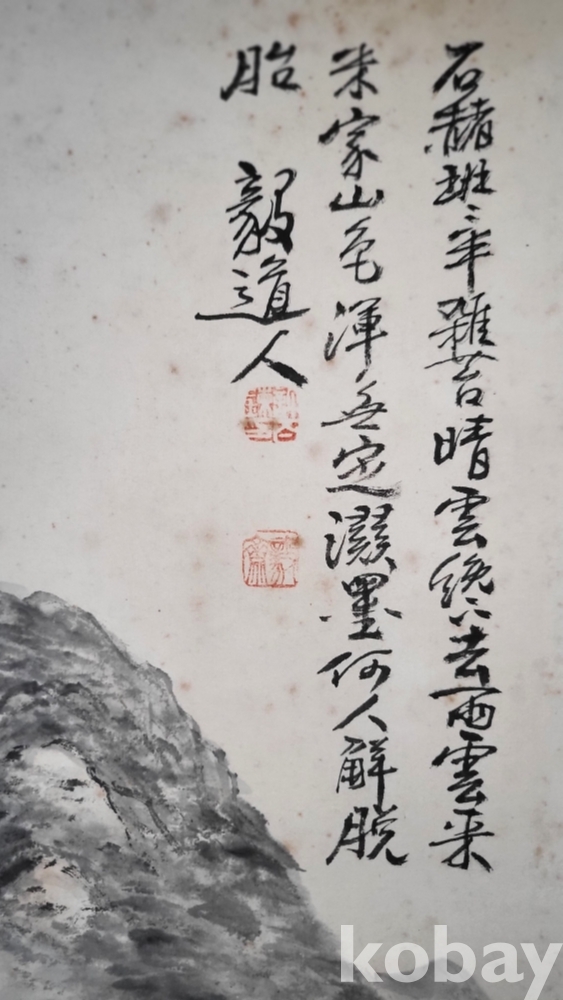 石赭班〻半雜苔晴雲纔去雨雲来
米家山色渾無定潑墨何人解脱
胎 毅道人
kobay